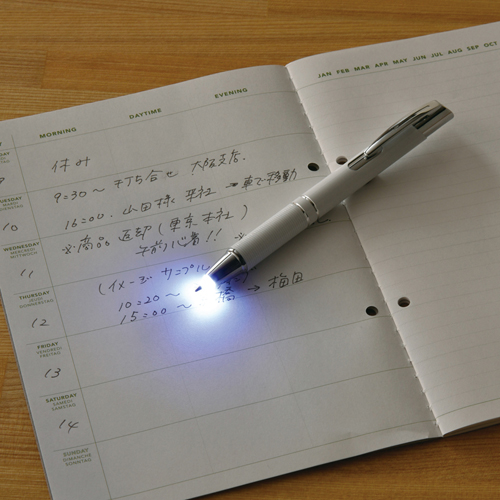 JAN FEB MAR APR MAY JUN JUL AUG SEP OCT
MORNING DAYTIME EVENING
休み
9:30～ 打ち合せ 大阪支店.
TUESDAY
MARDI
DIENSTAG
10
16:00. 山田様 来社 → 車で移動
※商品 返却（東京本社）
WEDNESDAY
MERCREDI
MITTWOCH
午前必着!! ※
11
(イメージサンプル
THURSDAY
JEUDI
DONNERSTAG
10:20～
12
15:00～ 橋 → 梅田
FRIDAY
VENDREDI
FREITAG
13
SATURDAY
SAMEDI
SAMSTAG
14
SUNDAY
DIMANCHE
SONNTAG